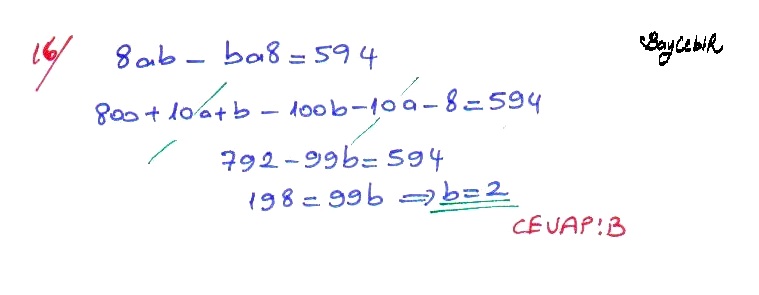 16/ 8ab - ba8 = 594
BayCebiR
800 + 10a + b - 100b - 10a - 8 = 594
792 - 99b = 594
198 = 99b ⇒ b = 2
CEVAP: B